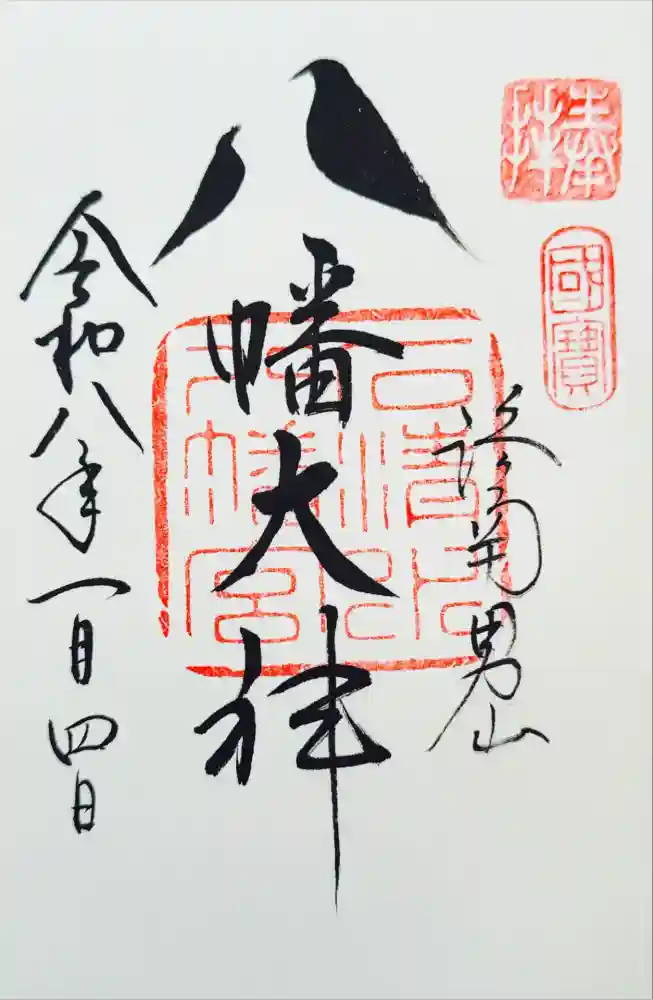 奉拝
國寶
洛南男山
八幡大神
石清水
八幡宮
令和八年一月四日